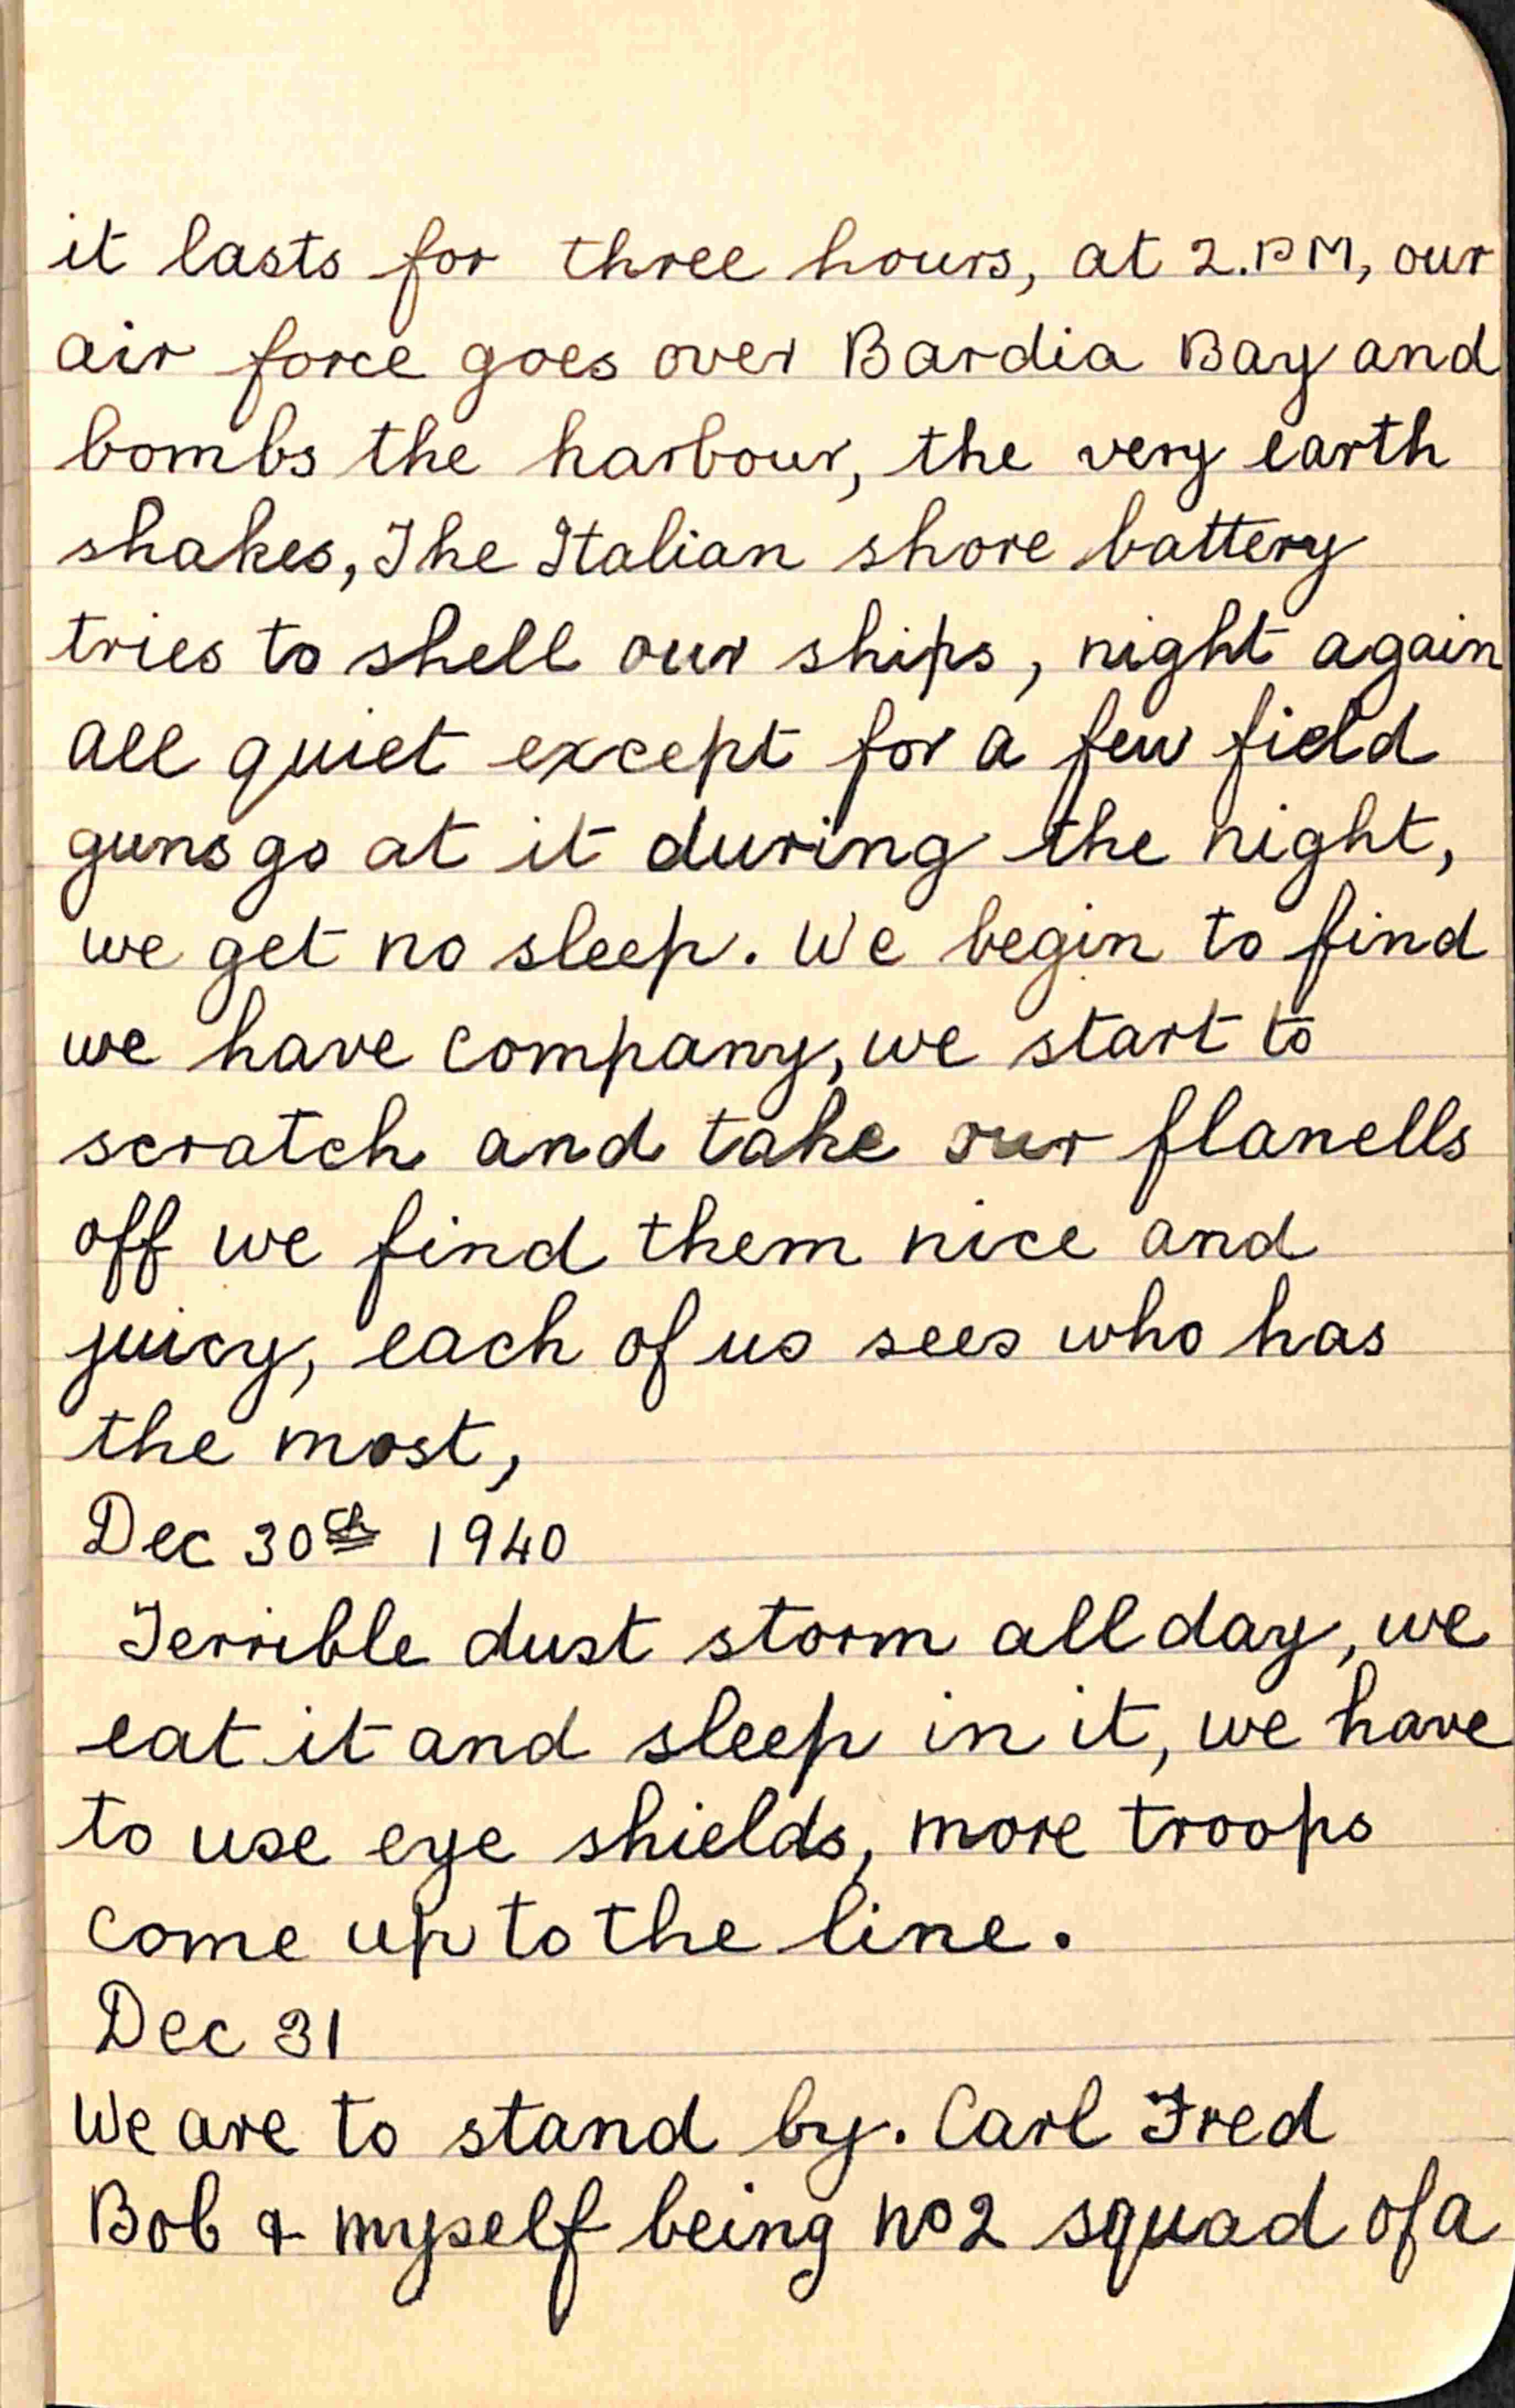 it lasts for three hours, at 2.PM, our
air force goes over Bardia Bay and
bombs the harbour, the very earth
shakes, The Italian shore battery
tries to shell our ships, night again
all quiet except for a few field
guns go at it during the night,
we get no sleep. We begin to find
we have company, we start to
scratch and take our flanells
off we find them nice and
juicy, each of us sees who has
the most,
Dec 30th 1940
Terrible dust storm all day, we
eat it and sleep in it, we have
to use eye shields, more troops
come up to the line.
Dec 31
We are to stand by. Carl Fred
Bob & myself being no 2 squad of a